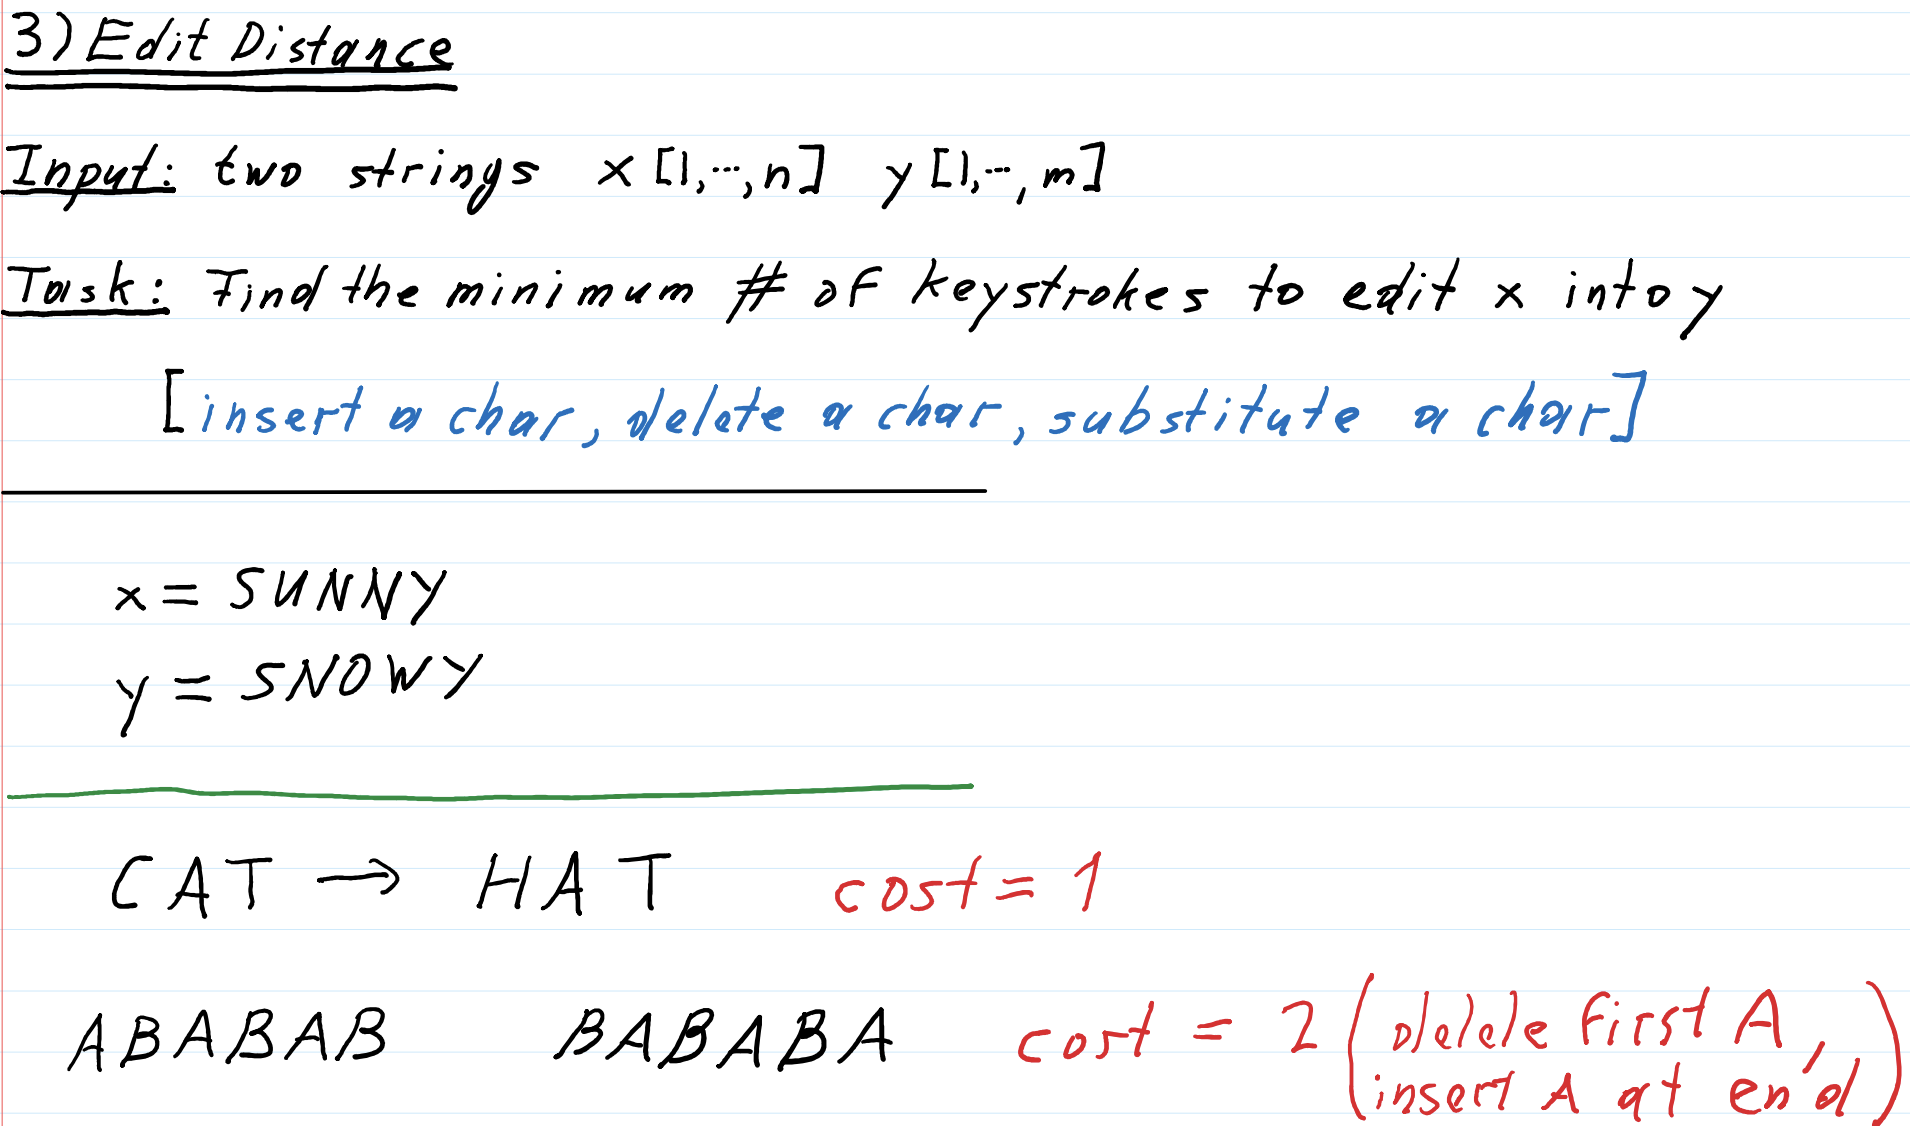 3) Edit Distance
Input: two strings x [1,...,n] y [1,...,m]
Task: Find the minimum # of keystrokes to edit x into y
[insert a char, delete a char, substitute a char]
x = SUNNY
y = SNOWY
CAT → HAT cost = 1
ABABAB BABABA cost = 2 (delele first A,
insert A at end)